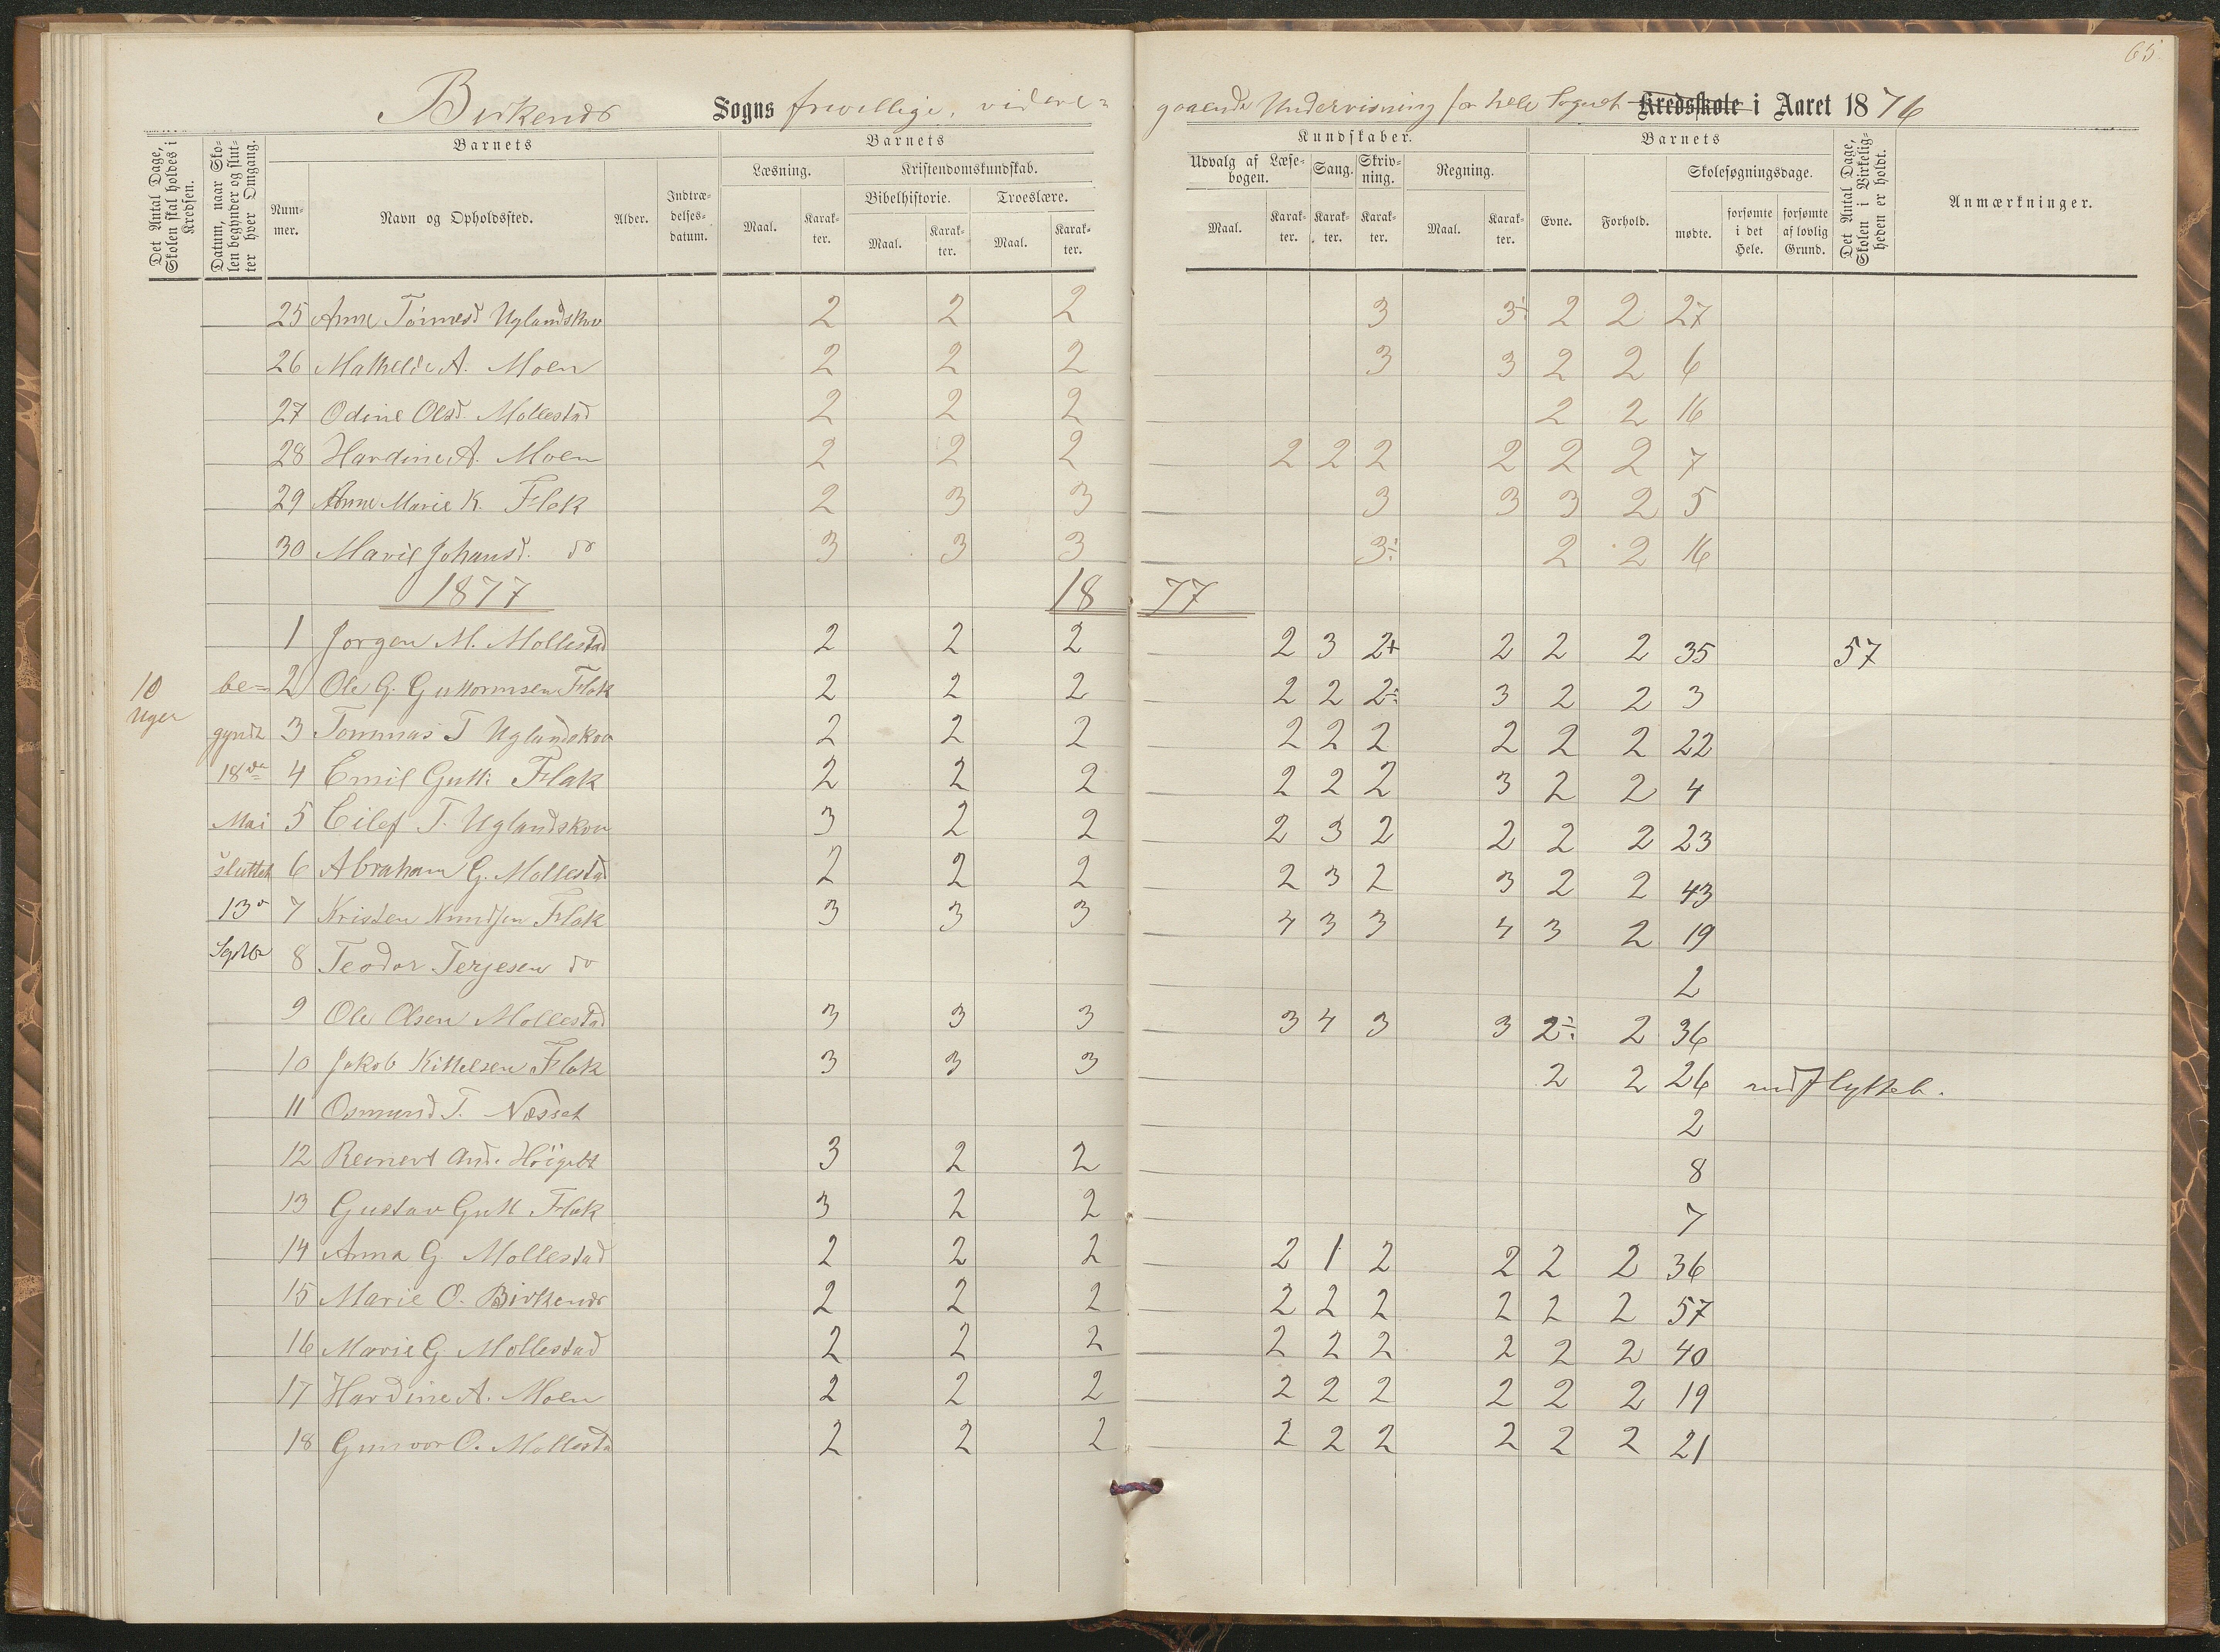 65
Birkenes Sogns frivillige, videre= gaaende Undervisning for hele Sognet Kredsskole i Aaret 1876
Det Antal Dage, Skolen skal holdes i Kredsen.
Datum, naar Skolen begynder og slutter hver Omgang.
Barnets
Nummer.
Navn og Opholdssted.
Alder.
Indtrædelsesdatum.
Barnets
Læsning.
Maal.
Karakter.
Kristendomskundskab.
Bibelhistorie.
Maal.
Karakter.
Troeslære.
Maal.
Karakter.
Kundskaber.
Udvalg af Læsebogen.
Maal.
Karakter.
Sang.
Karakter.
Skrivning.
Karakter.
Regning.
Maal.
Karakter.
Barnets
Evne.
Forhold.
Skolesøgningsdage.
mødte.
forsømte i det Hele.
forsømte af lovlig Grund.
Det Antal Dage, Skolen i Virkeligheden er holdt.
Anmærkninger.
25 Anne Tórmesd Uglandskov 2 2 2 3 3÷ 2 2 27
26 Mathilde A. Moen 2 2 2 3 3 2 2 6
27 Odine Olsd. Mollestad 2 2 2 2 2 16
28 Hardine A. Moen 2 2 2 2 2 2 2 2 2 7
29 Anne Marie K. Flak 2 3 3 3 3 3 2 5
30 Marie Johansd. do 3 3 3 3÷ 2 2 16
1877 1877
1 Jorgen M. Mollestad 2 2 2 2 3 2+ 2 2 2 35 57
10 Uger be= 2 Ole G. Guttormsen Flak 2 2 2 2 2 2÷ 3 2 2 3
gyndt 3 Tommas T Uglandskov 2 2 2 2 2 2 2 2 2 22
18de 4 Emil Gutt: Flak 2 2 2 2 2 2 3 2 2 4
Mai 5 Eilef T. Uglandskov 3 2 2 2 3 2 2 2 2 23
sluttet 6 Abraham G. Mollestad 2 2 2 2 3 2 3 2 2 43
13 7 Kristen Knudsen Flak 3 3 3 4 3 3 4 3 2 19
Septbr 8 Teodor Terjesen do 2
9 Ole Olsen Mollestad 3 3 3 3 4 3 3 2÷ 2 36
10 Jakob Kittelsen Flak 3 3 3 2 2 26 udflyttet.
11 Osmund T. Næsset 2
12 Reinert And. 3 2 2 8
13 Gustav Gutt Flak 3 2 2 7
14 Anna G Mollestad 2 2 2 2 1 2 2 2 2 36
15 Marie O. Birkenes 2 2 2 2 2 2 2 2 2 57
16 Marie G. Mollestad 2 2 2 2 2 2 2 2 2 40
17 Hardine A. Moen 2 2 2 2 2 2 2 2 2 19
18 Gunvor O. Mollesta 2 2 2 2 2 2 2 2 2 21